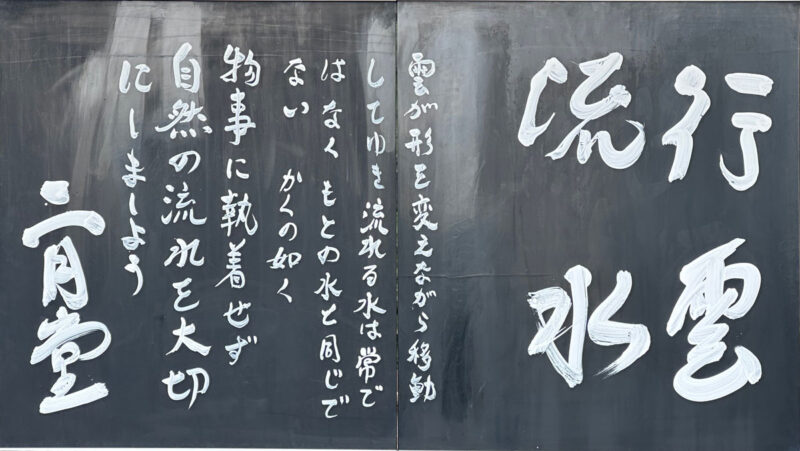 行雲
流水
雲が形を変えながら移動
してゆき流れる水は常で
はなくもとの水と同じで
ない　かくの如く
物事に執着せず
自然の流れを大切
にしましょう
二月堂